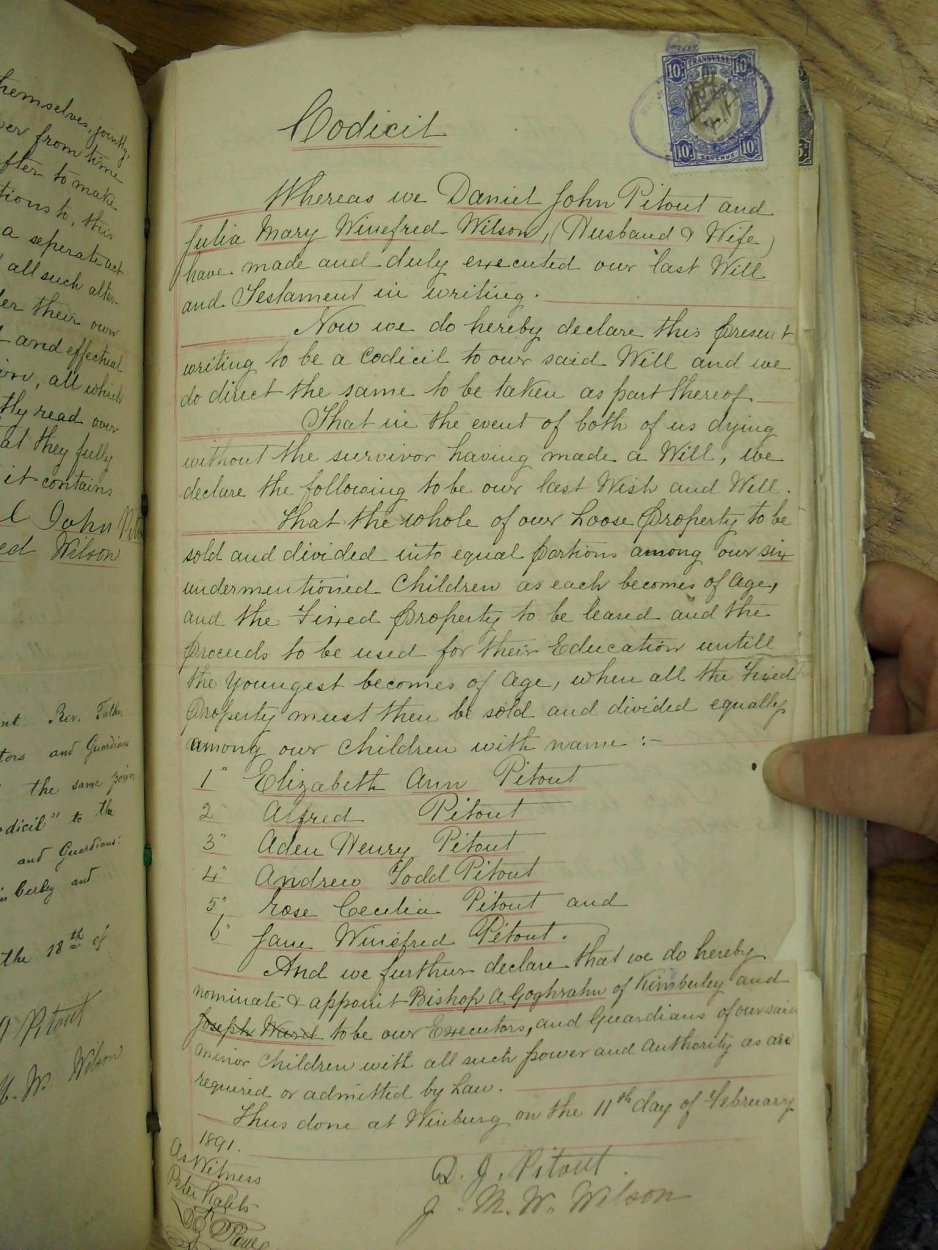 themselves, jointly,
from time
after to make
to, this
a seperate act
all such alter-
their own
and effectual
all which
read over
at they fully
it contains
John
Wilson
Rev.
and Guardians
the same
" to the
and Guardians
and
the 18th of
Pitout
W. Wilson
10/- TRANSVAAL 10/-
10/- REVENUE 10/-
Codicil
Whereas we Daniel John Pitout and
Julia Mary Winefred Wilson, (Husband & Wife)
have made and duly executed our last Will
and Testament in writing.
Now we do hereby declare this present
writing to be a Codicil to our said Will and we
do direct the same to be taken as part thereof
That in the event of both of us dying
without the survivor having made a Will, we
declare the following to be our last Wish and Will.
That the whole of our Loose Property to be
sold and divided into equal portions among our six
undermentioned Children as each becomes of Age,
and the Fixed Property to be leased and the
Proceeds to be used for their Education untill
the Youngest becomes of Age, when all the Fixed
Property must then be sold and divided equally
among our children with name :-
1" Elizabeth Ann Pitout
2" Alfred Pitout
3" Aden Henry Pitout
4" Andrew Todd Pitout
5" Rose Cecilia Pitout and
6" Jane Winifred Pitout.
And we further declare that we do hereby
nominate & appoint Bishop A Goghrahn of Kimberley and
Joseph Ward to be our Executors, and Guardians of our said
minor children with all such power and Authority as are
required or admitted by Law.
Thus done at Winburg on the 11th day of February
1891.
As Witness
Peter
D. J. Pitout.
J. M. W. Wilson